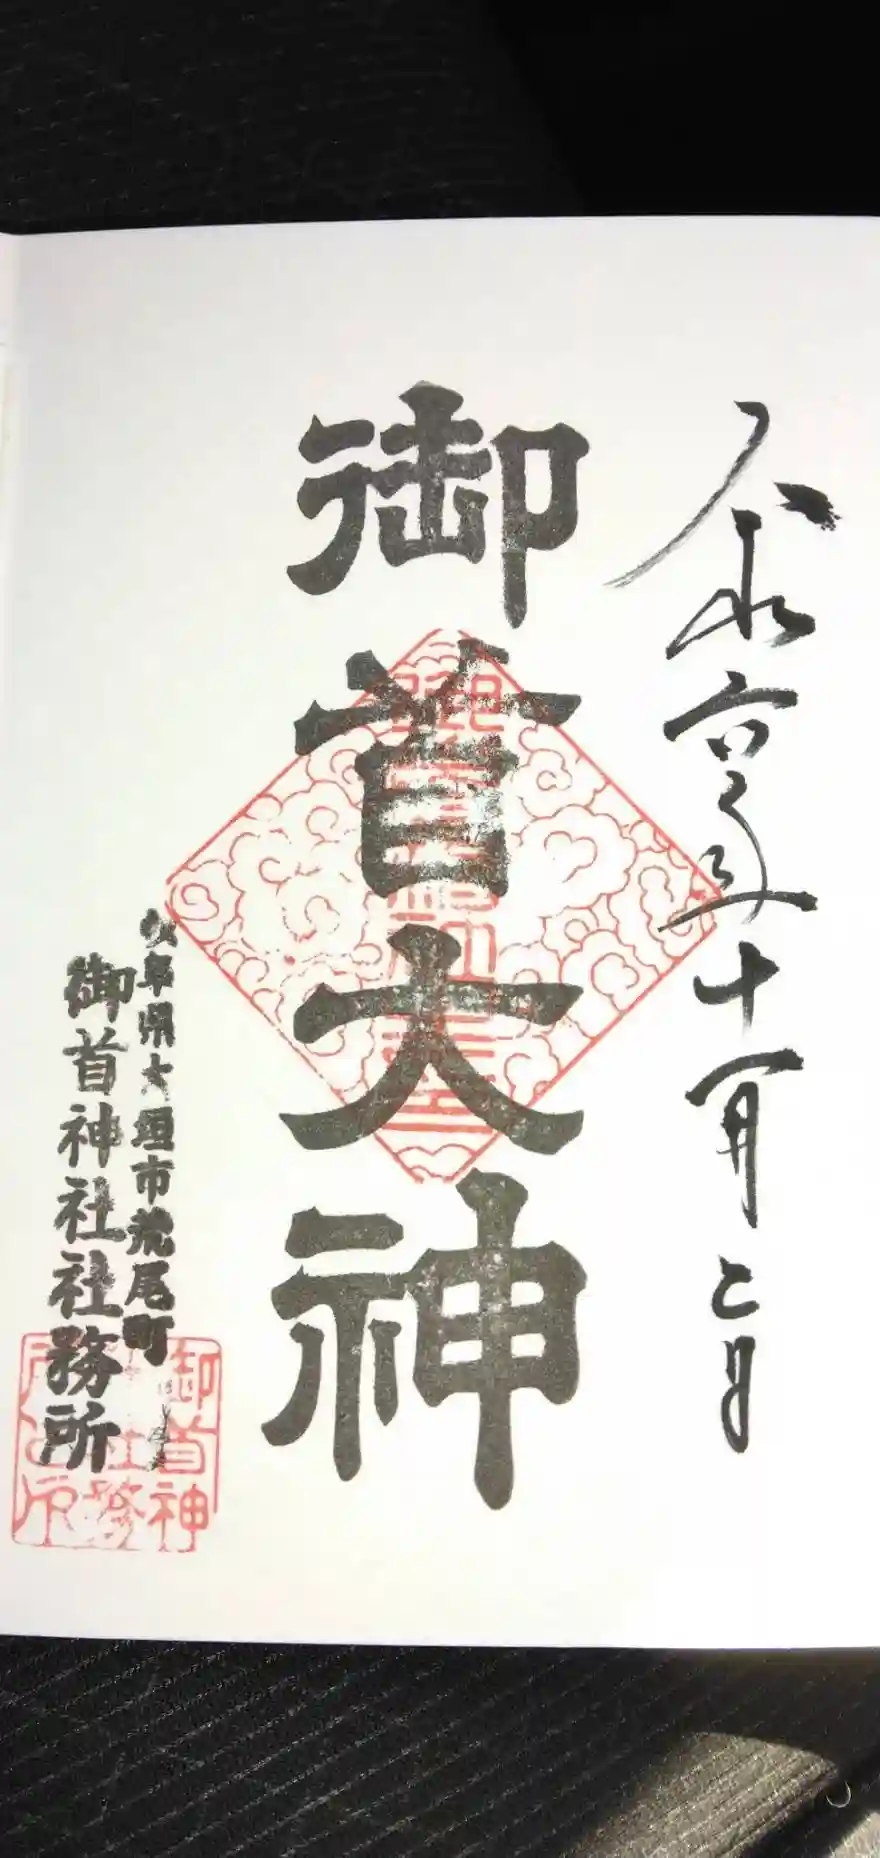 令和六年十一月二日
御首大神
岐阜県大垣市荒尾町
御首神社社務所
御首神